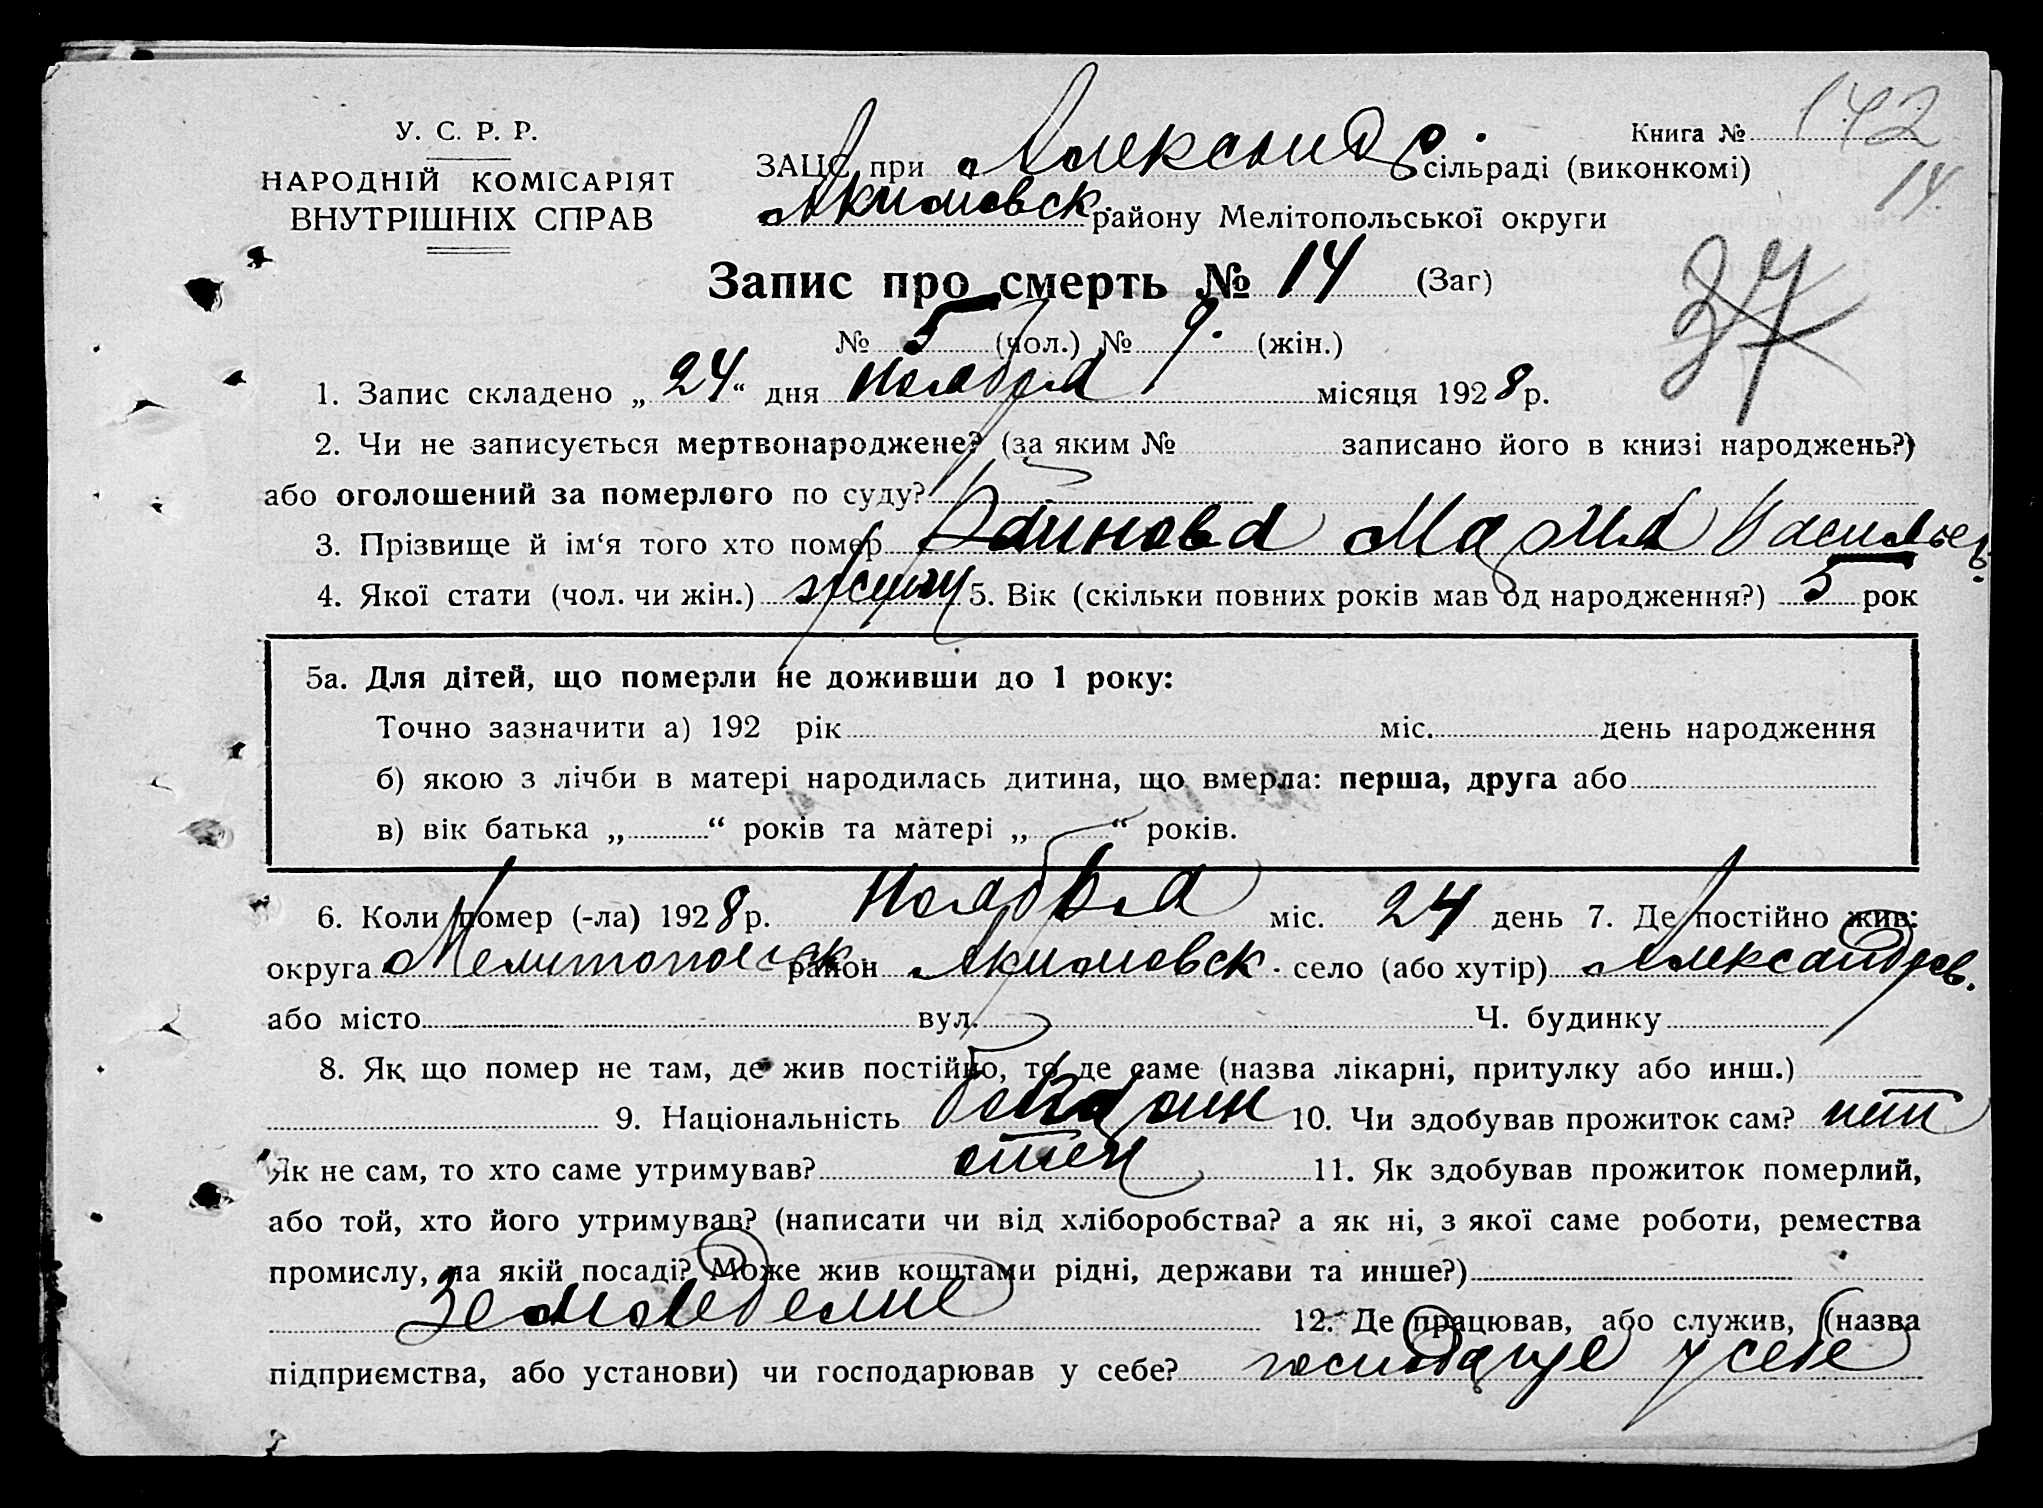 У. С. Р. Р.
НАРОДНІЙ КОМІСАРІЯТ
ВНУТРІШНІХ СПРАВ
Книга № 142
14
ЗАЦС при Александро. сільраді (виконкомі)
Акимовск. району Мелітопольської округи
Запис про смерть № 14 (Заг)
37
№ 5 (чол.) № 9. (жін.)
1. Запис складено „ 24 “ дня Ноября місяця 1928 р.
2. Чи не записується мертвонароджене? (за яким № записано його в книзі народжень?)
або оголошений за померлого по суду?
3. Прізвище й ім‘я того хто помер Мария Васильев.
4. Якої стати (чол. чи жін.) 5. Вік (скільки повних років мав од народження?) 5 рок
5а. Для дітей, що померли не доживши до 1 року:
Точно зазначити а) 192 рік міс. день народження
б) якою з лічби в матері народилась дитина, що вмерла: перша, друга або
в) вік батька „ “ років та матері „ “ років.
6. Коли помер (-ла) 1928 р. Ноября міс. 24 день 7. Де постійно жив:
округа Мелитопольск район Акимовск. село (або хутір) Александров.
або місто вул. Ч. будинку
8. Як що помер не там, де жив постійно, то де саме (назва лікарні, притулку або инш.)
9. Національність 10. Чи здобував прожиток сам? нет
Як не сам, то хто саме утримував? отец 11. Як здобував прожиток померлий,
або той, хто його утримував? (написати чи від хліборобства? а як ні, з якої саме роботи, ремества
промислу, на якій посаді? Може жив коштами рідні, держави та инше?)
Земледелие 12. Де працював, або служив, (назва
підприємства, або установи) чи господарював у себе? господарує у себе